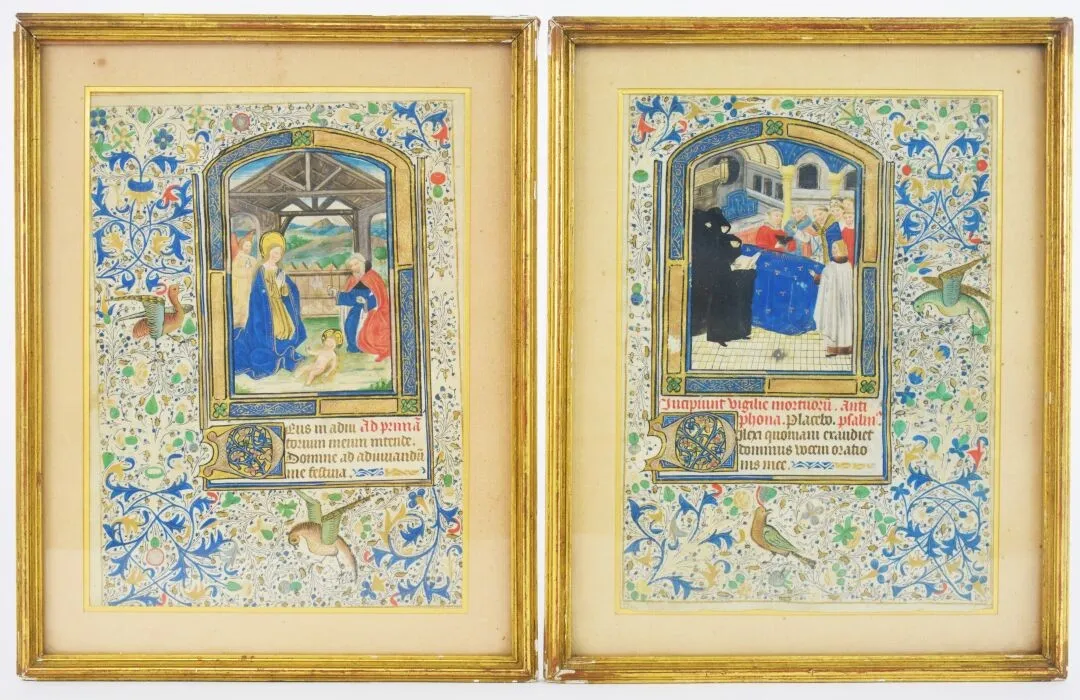 Deus in adiu Ad primā
torium meum intende.
Domine ad adiuuandū
me festina.
Incipiunt vigilie mortuorū. Anti
phona. Placebo. psalm⁹
Dilexi quoniam exaudiet
dominus vocem oratio
nis mee.